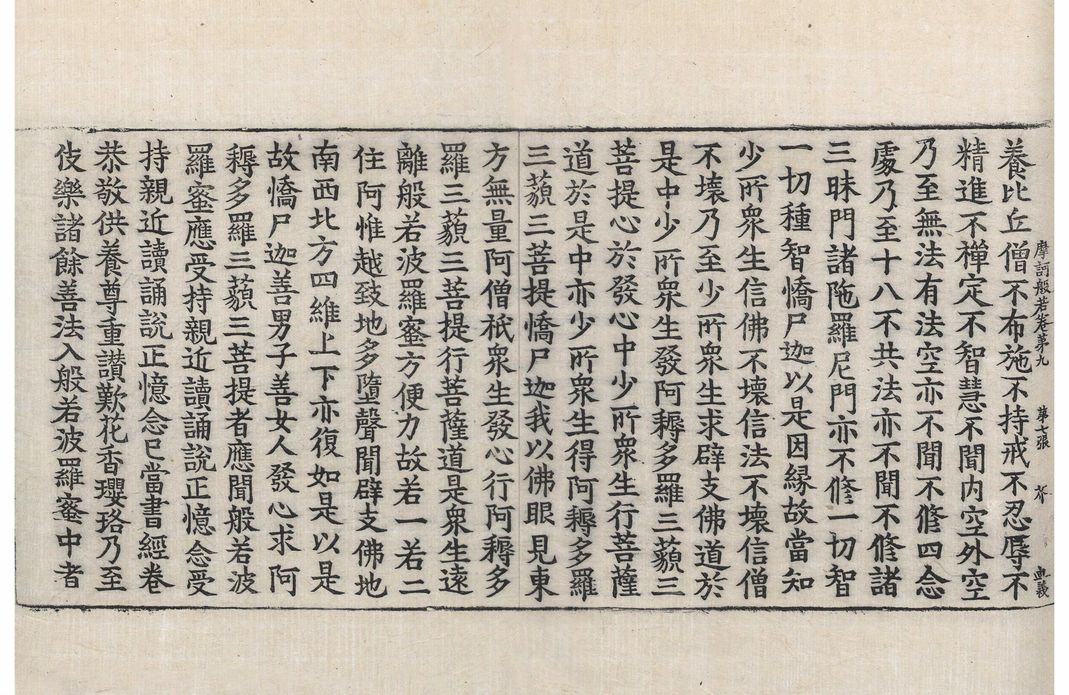 摩訶般若卷第九　第七張　芥　血義
養比丘僧不布施不持戒不忍辱不
精進不禪定不智慧不聞内空外空
乃至無法有法空亦不聞不修四念
處乃至十八不共法亦不聞不修諸
三昧門諸陁羅尼門亦不修一切智
一切種智憍尸迦以是因緣故當知
少所衆生信佛不壞信法不壞信僧
不壞乃至少所衆生求辟支佛道於
是中少所衆生發阿耨多羅三藐三
菩提心於發心中少所衆生行菩薩
道於是中亦少所衆生得阿耨多羅
三藐三菩提憍尸迦我以佛眼見東
方無量阿僧祇衆生發心行阿耨多
羅三藐三菩提行菩薩道是衆生遠
離般若波羅蜜方便力故若一若二
住阿惟越致地多墮聲聞辟支佛地
南西北方四維上下亦復如是以是
故憍尸迦善男子善女人發心求阿
耨多羅三藐三菩提者應聞般若波
羅蜜應受持親近讀誦說正憶念受
持親近讀誦說正憶念已當書經卷
恭敬供養尊重讃歎花香瓔珞乃至
伎樂諸餘善法入般若波羅蜜中者